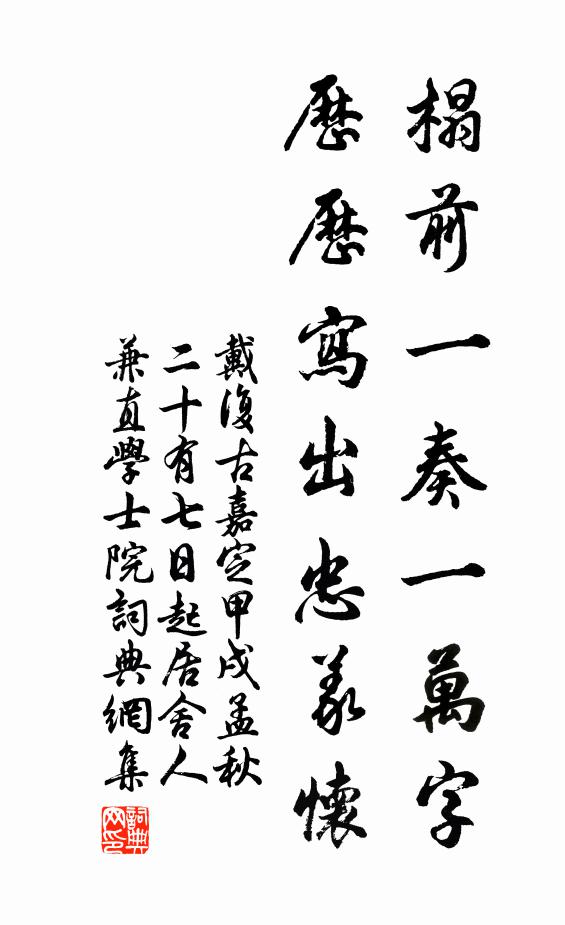 榻前一奏一萬字
歷歷寫出忠義懷
戴復古嘉定甲戌孟秋
二十有七日起居舍人
兼直學士院詞典網集
詞典網印